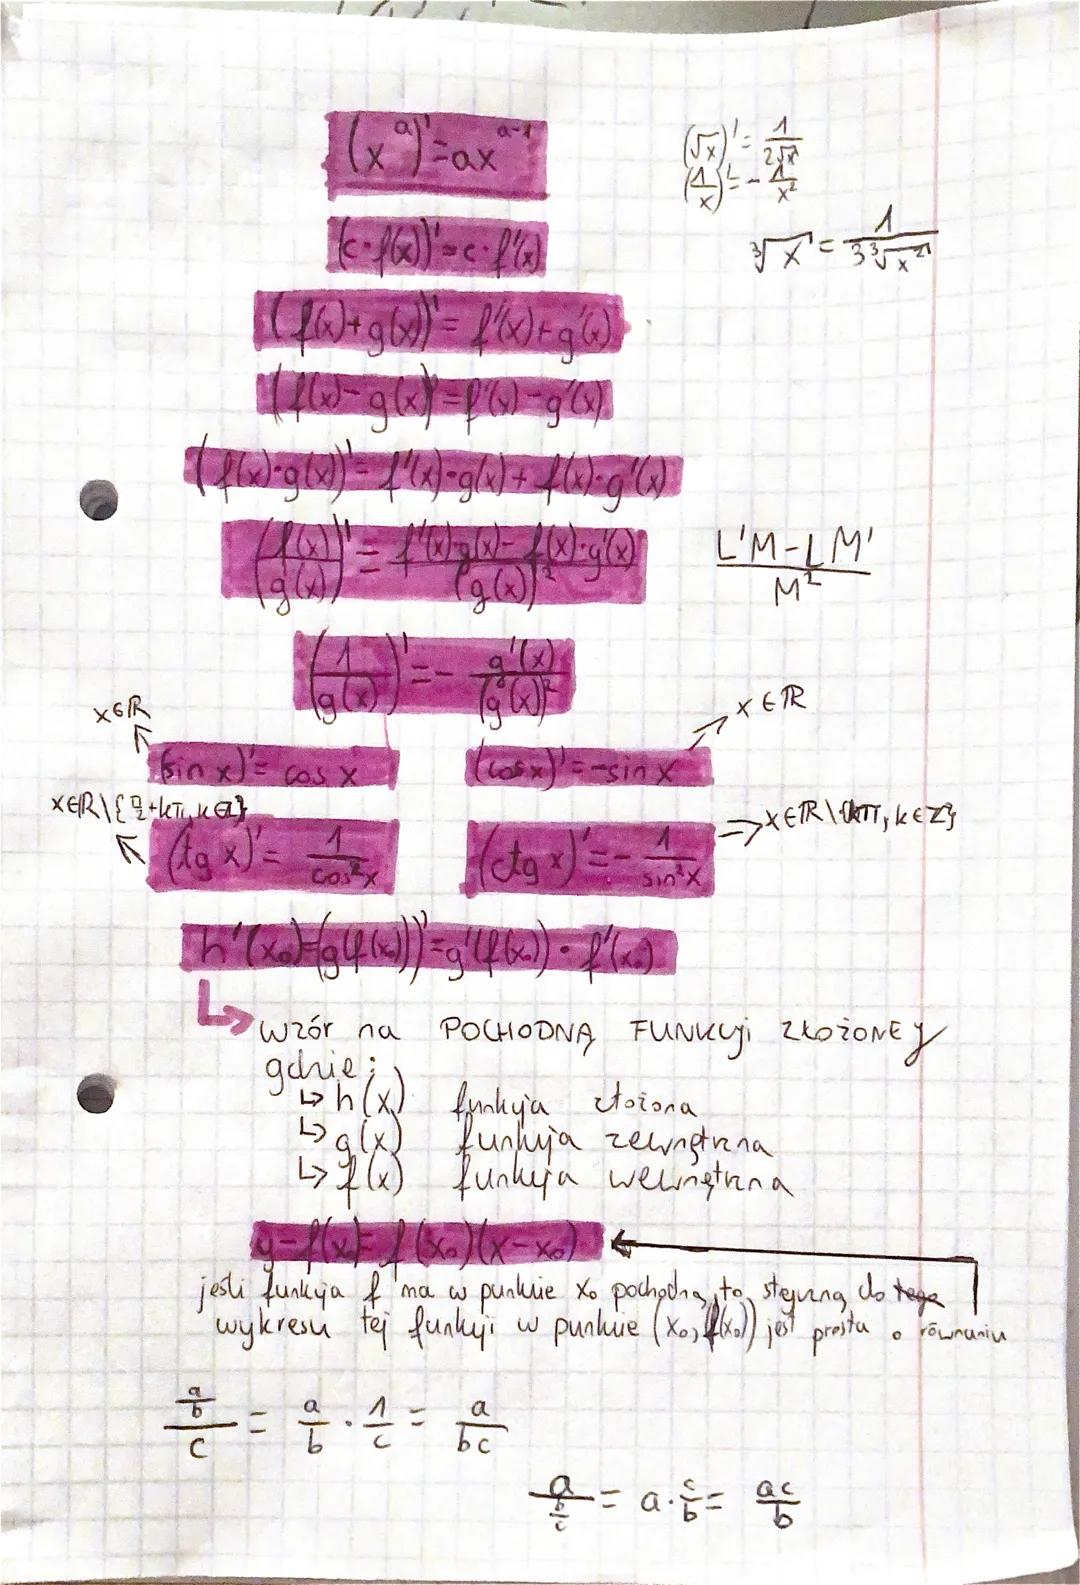 (x^a)' = ax^(a-1)
(√x)' = 1/(2√x)
(1/x)' = - 1/x²
(c·f(x))' = c·f'(x)
∛x' = 1/(3∛x²)
(f(x)+g(x))' = f'(x)+g'(x)
(f(x)-g(x))' = f'(x)-g'(x)
(f(x)·g(x))' = f'(x)·g(x) + f(x)·g'(x)
(f(x)/g(x))' = (f'(x)·g(x) - f(x)·g'(x))/(g(x))²
(L'M - LM')/M²
(1/g(x))' = - g'(x)/(g(x))²
x∈ℝ
x∈ℝ
(sin x)' = cos x
(cos x)' = -sin x
x∈ℝ\{π/2+kπ, k∈ℤ}
→ x∈ℝ\{kπ, k∈ℤ}
(tg x)' = 1/cos²x
(ctg x)' = - 1/sin²x
h'(x₀) = (g(f(x₀)))' = g'(f(x₀)) · f'(x₀)
↳ wzór na POCHODNĄ FUNKcji ZŁOŻONEj
gdzie:
↳ h(x) funkcja złożona
↳ g(x) funkcja zewnętrzna
↳ f(x) funkcja wewnętrzna
y-f(x₀) = f'(x₀)(x-x₀)
jeśli funkcja f ma w punkcie x₀ pochodną, to styczną do tego
wykresu tej funkcji w punkcie (x₀, f(x₀)) jest prosta o równaniu
(a/b)/c = a/b · 1/c = a/bc
a/(b/c) = a · c/b = ac/b